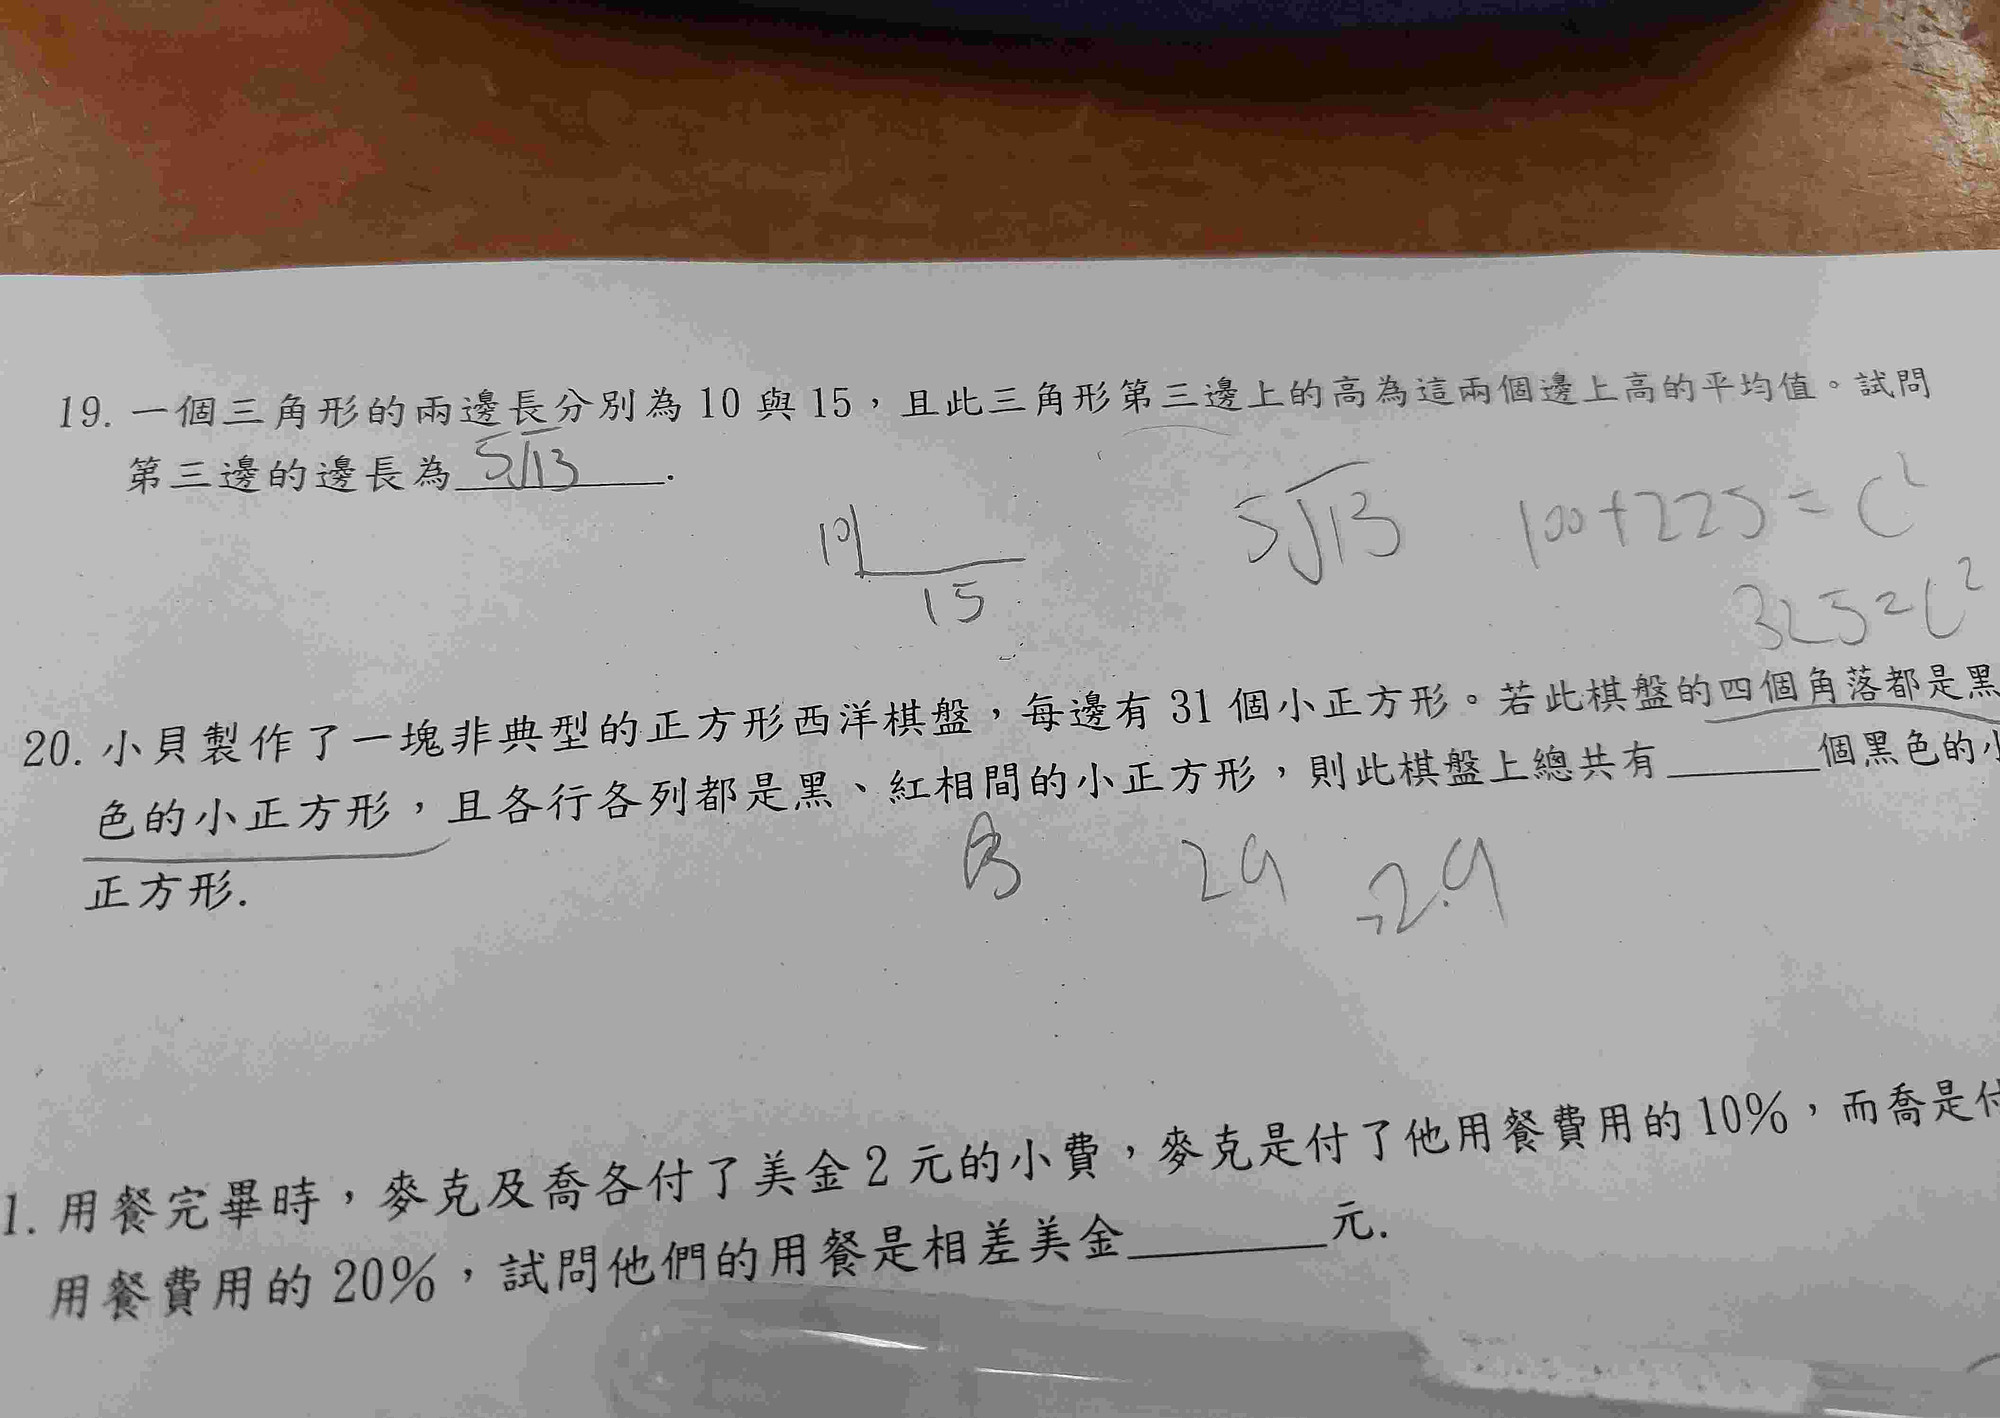 19. 一個三角形的兩邊長分別為 10 與 15，且此三角形第三邊上的高為這兩個邊上高的平均值。試問
第三邊的邊長為 5√13 .
10
15
5√13
100+225=C²
325=C²
20. 小貝製作了一塊非典型的正方形西洋棋盤，每邊有 31 個小正方形。若此棋盤的四個角落都是黑
色的小正方形，且各行各列都是黑、紅相間的小正方形，則此棋盤上總共有______個黑色的小
正方形.
29
29
1. 用餐完畢時，麥克及喬各付了美金 2 元的小費，麥克是付了他用餐費用的 10%，而喬是付
用餐費用的 20%，試問他們的用餐是相差美金______元.